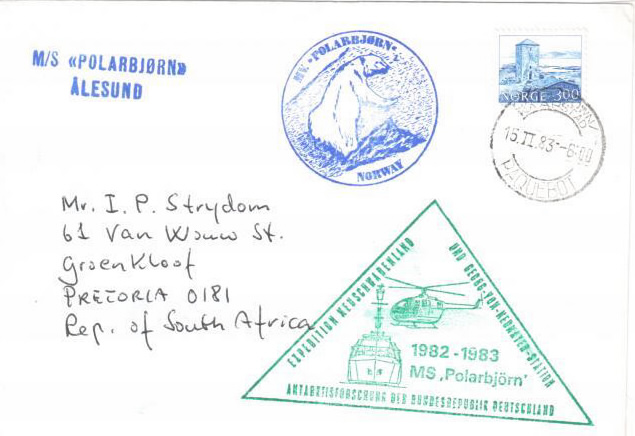 M/S «POLARBJØRN»
ÅLESUND
MV. "POLARBJØRN"
NORWAY
NORGE 300
15.II.83-6:00
PAQUEBOT
Mr. I. P. Strydom
61 Van Wouw St.
Groenkloof
PRETORIA 0181
Rep. of South Africa
EXPEDITION NEUSCHWABENLAND
UND GEORG-VON-NEUMAYER-STATION
1982-1983
MS ,Polarbjörn'
ANTARKTISFORSCHUNG DER BUNDESREPUBLIK DEUTSCHLAND